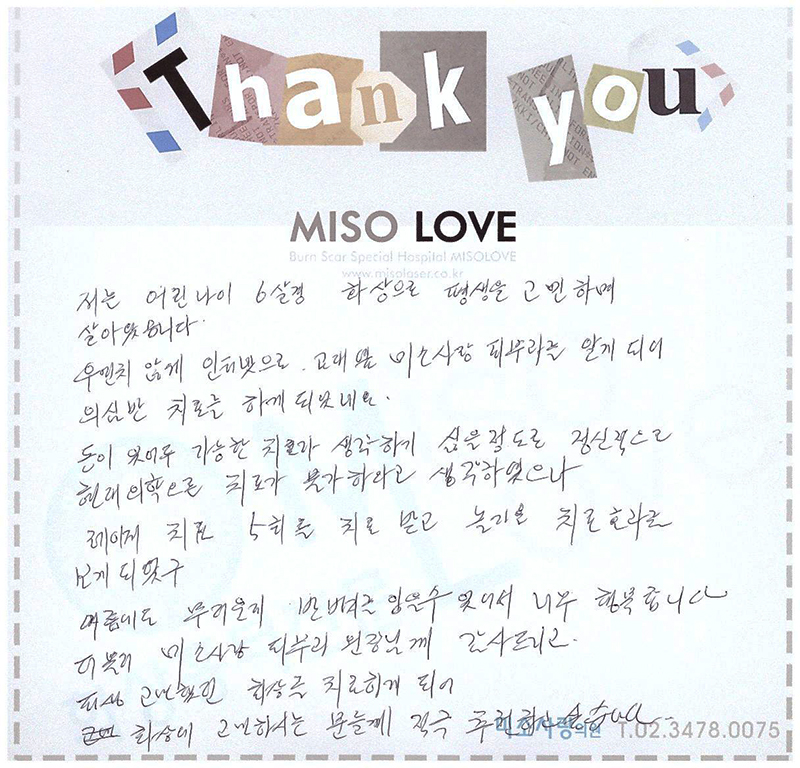 Thank you
MISO LOVE
Burn Scar Special Hospital MISOLOVE
www.misolaser.co.kr
저는 어린나이 6살경 화상으로 평생을 고민하며
살아왔습니다.
우연치 않게 인터넷으로 미소사랑 피부과를 알게 되어
의심반 치료를 하게 되었네요.
돈이 있어도 가능한 치료라 생각하기 싫을정도로 정신적으로
현대의학으로 치료가 불가하다고 생각하였으나
레이저 치료 5회를 치료 받고 놀라운 치료효과를
보게 되었구
여름에도 무더운지 반바지를 입을수 있어서 너무 행복합니다
더불어 미소사랑 피부과 원장님께 감사드리고.
평생 고민했던 화상을 치료하게 되어
화상에 고민하시는 분들께 적극 추천하고 싶습니다.
미소사랑의원 T.02.3478.0075